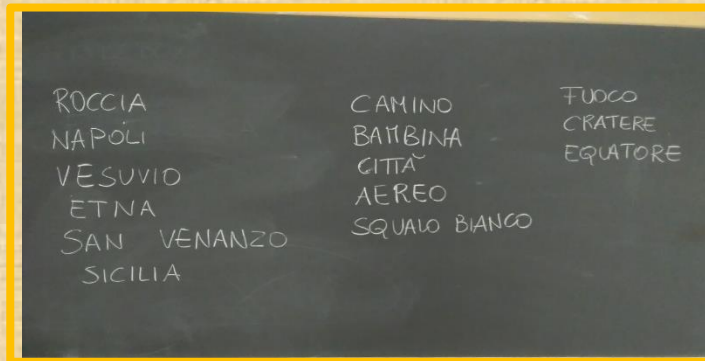 ROCCIA
NAPOLI
VESUVIO
ETNA
SAN VENANZO
SICILIA
CAMINO
BAMBINA
CITTÀ
AEREO
SQUALO BIANCO
FUOCO
CRATERE
EQUATORE